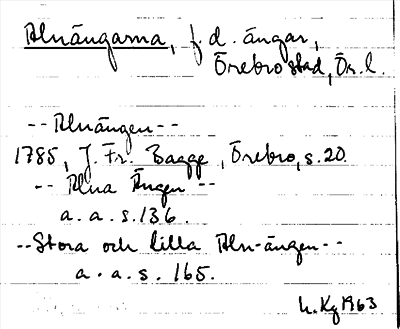 Alnängarna, f.d. ängar,
Örebro stad, Ör. l.
-- Alnängen --
1785, J. Fr. Bagge, Örebro, s. 20.
-- Alna Ängen --
a. a. s. 136.
-- Stora och lilla Aln-ängen --
a. a. s. 165.
h. Kg 1963